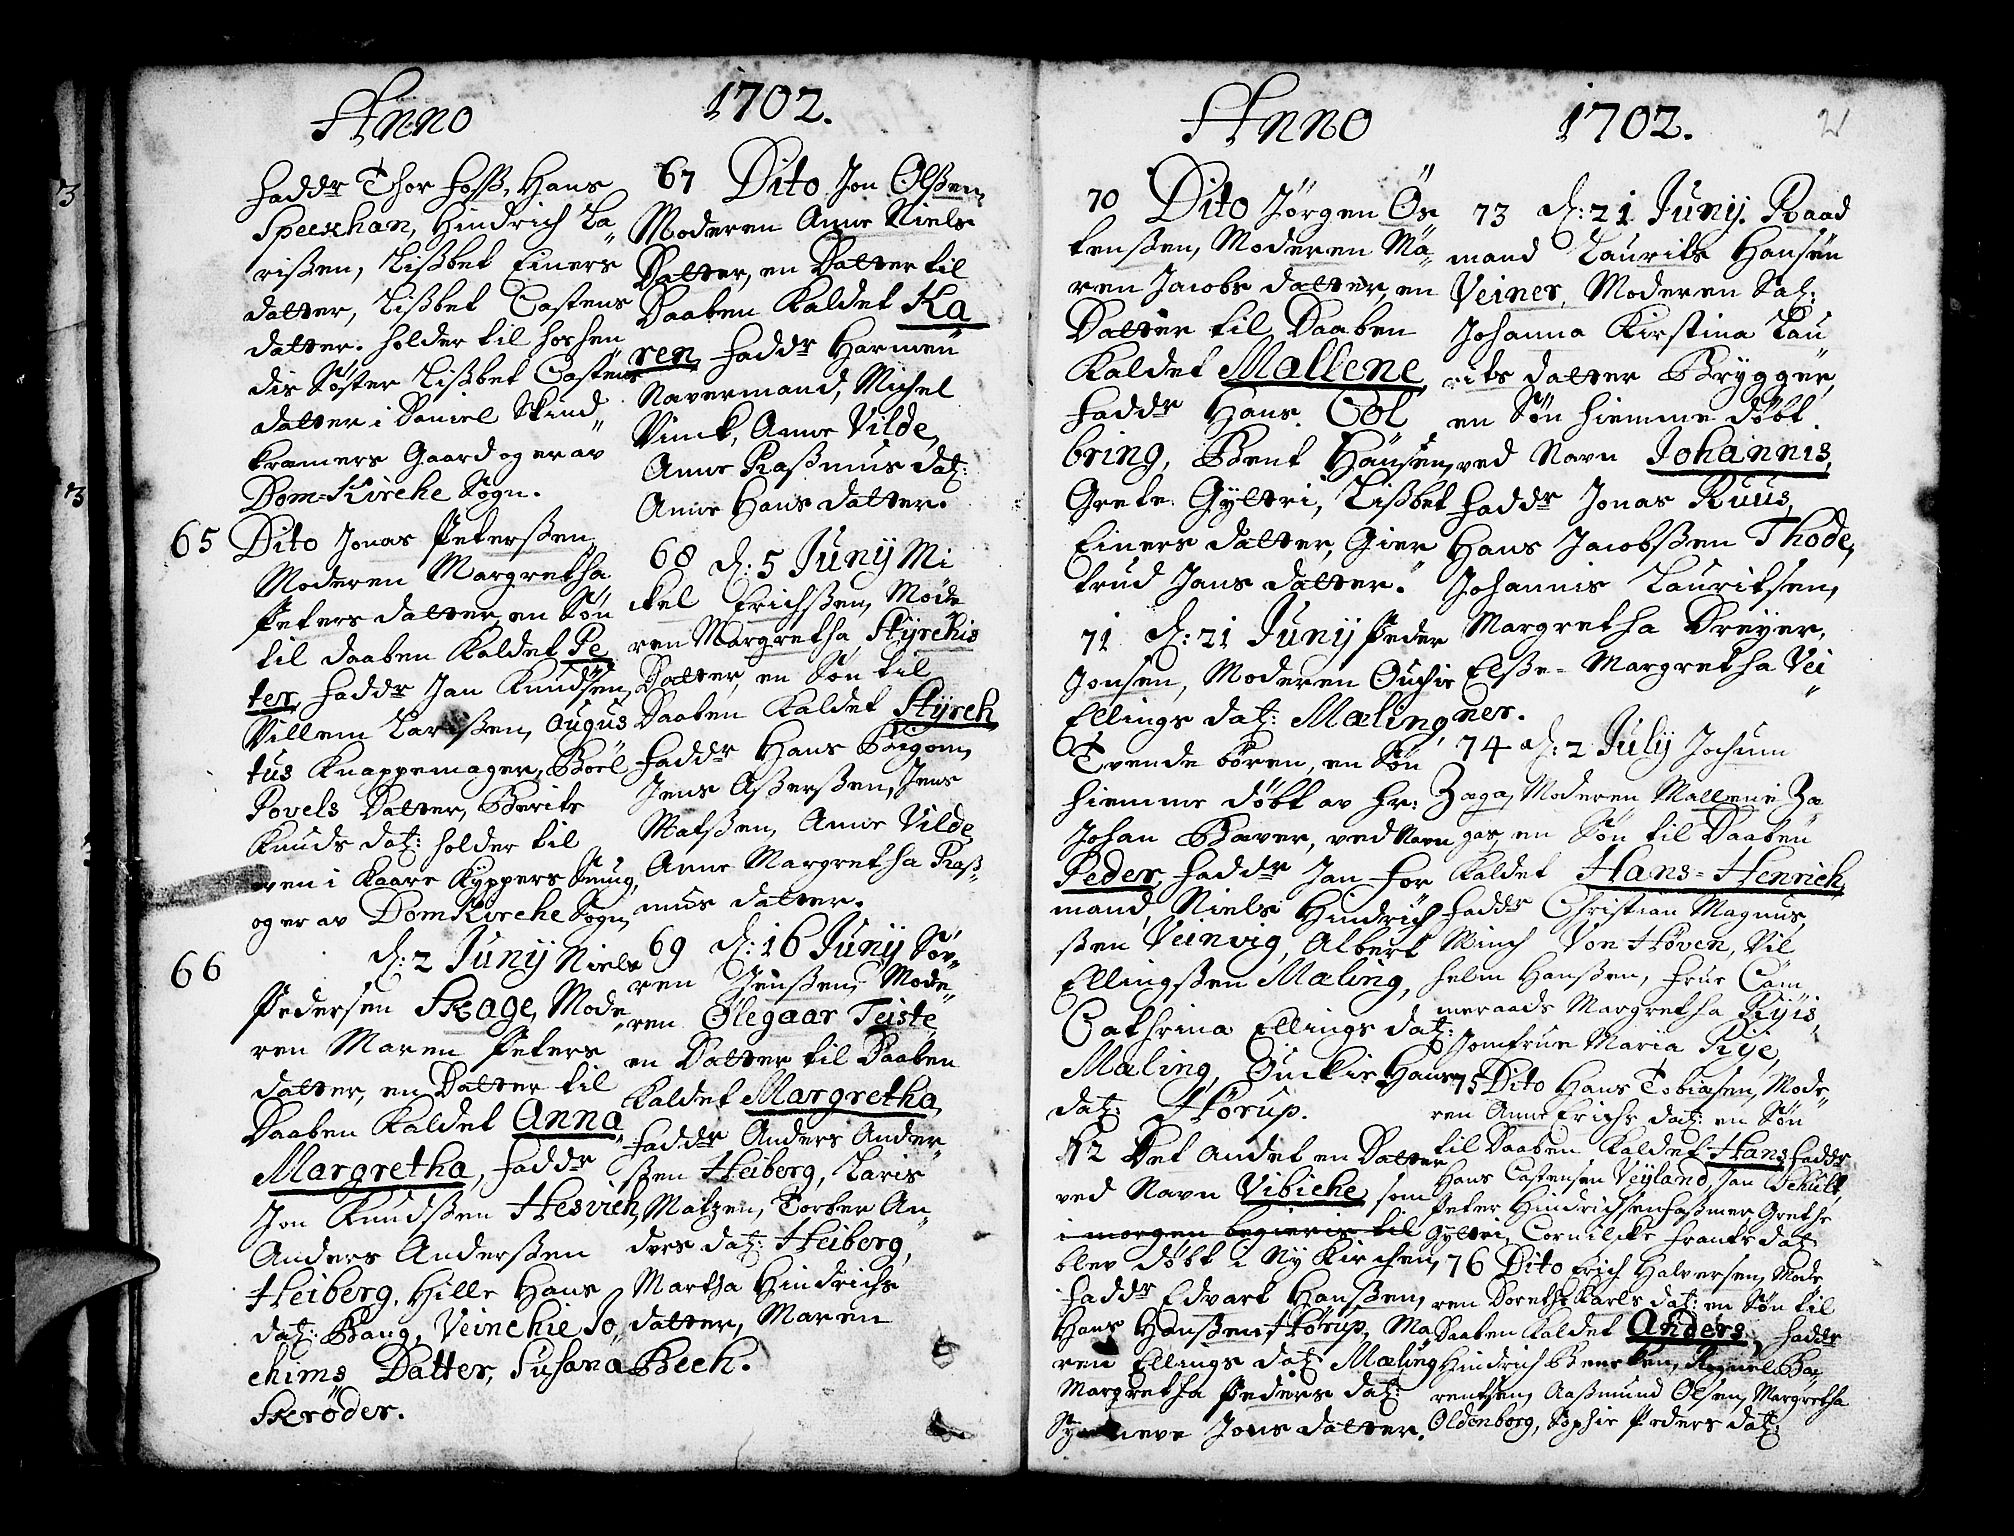 Anno 1702.
Fadd͞r Thor Foss, Hans
Speckhan, Hindrich La
rissen, Lissbet Einers
datter, Lissbet Castens
datter. holder til hos hen
dis Søster Lissbet Castens
datter i Daniel Skind
kramers Gaard og er av
Dom=Kirche Sogn.
65 Dito Jonas Peterssen,
Moderen Margretha
Peters datter, en Søn
til daaben Kaldet Pe
ter, Fadd͞r Jan Knudsen,
Villem Larssen, Augus
tus Knappemager, Boel
Povels Datter, Berite
Knuds dat: holder til
oven i Kaare Kyppers Smug,
og er av DomKirche Sogn,
66 d: 2 Junij Niels
Pedersen Skage, Mode
ren Maren Peters
datter, en Datter til
Daaben Kaldet Anna
Margretha, Fadd͞r
Jon Knudssen Hesvich,
Anders Anderssen
Heiberg, Hille Hans
dat: Bang, Veinchie Jo
chims Datter, Susana
Skrøder.
67 Dito Jon Olssen,
Moderen Anne Niels
Datter, en Datter til
Daaben Kaldet Ka
ren, Fadd͞r Harmen
Navermand, Michel
Vinck, Anne Vilde,
Anne Rassmus dat:
Anne Hans datter.
68 d: 5 Junij Mi
ckel Erichssen, Mode
ren Margretha Styrchis
Datter, en Søn til
Daaben Kaldet Styrch
Fadd͞r Hans Bigom,
Jens Asserssen, Jens
Matssen, Anne Vilde,
Anne Margretha Rass
mus datter.
69 d: 16 Junij Søf
ren Jenssen, Mode
ren Olegaar Teiste,
en Datter til Daaben
Kaldet Margretha,
Fadd͞r Anders Ander
ssen Heiberg, Laris
Matzen, Torber An
ders dat: Heiberg,
Martha Hindrichs
datter, Maren
Bech.
Anno 1702.
70 Dito Jørgen Øs
tenssen, Moderen Ma
ren Jacobs datter, en
Datter til Daaben
Kaldet Mallene,
Fadd͞r Hans Col
bring, Bent Hansen,
Grete Gyltri, Lissbet
Einers datter, Gier
trud Jans datter.
71 d: 21 Junij Peder
Jonsen, Moderen Ouchie
Ellings dat: Mæling,
Tvende børen, en Søn
hiemme døbt av Hr:
Johan Baver, ved Navn
Peder, Fadd͞r Jan For
mand, Niels Hindrich
ssen Veinvig, Albert
Ellingssen Mæling,
Cathrina Ellings dat:
Mæling, Ouckie Hans
dat: Hørup.
72 Det andet en Datter
ved Navn Vibiche, som
i morgen begieris til
blev døbt i Ny Kirchen,
Fadd͞r Edvart Hanssen,
Hans Hanssen Hørup, Ma
ren Ellings dat: Mæling
Margretha Peders dat:
Jons datter.
73 d: 21 Junij. Raad
mand Laurits Hansen
Veiner, Moderen Sal:
Johanna Kirstina Lau
rits datter Brygger,
en Søn hiemme døbt
ved Navn Johannis,
Fadd͞r Jonas Ruus,
Hans Jacobssen Thode,
Johannis Lauritsen,
Margretha Dreyer,
Elsse=Margretha Vei
ner.
74 d: 2 July Jochum
Zaga, Moderen Mallene Za
gas, en Søn til Daaben
Kaldet Hans=Henrich,
Fadd͞r Christian Magnus
Minch Von Høven, Vil
helm Hanssen, Frue Cam
meraads Margretha Rijis,
Jomfrue Maria Rije,
75 Dito Hans Tobiasen, Mode
ren Anne Erichs dat: en Søn
til Daaben Kaldet Hans, Fadd͞r
Hans Castensen Veyland, Jan Schult,
Peter Hindrichsen Fassmer, Grethe
Gyltri, Cornilcke Franks dat:
76 Dito Erich Halversen, Mode
ren Dorethe Karls dat: en Søn til
Daaben Kaldet Anders, Fadd͞r
Hindrich Beerken, Regnel Ba
rentsen, Aassmund Olsen, Margretha
Oldenborg, Sophie Peders dat: